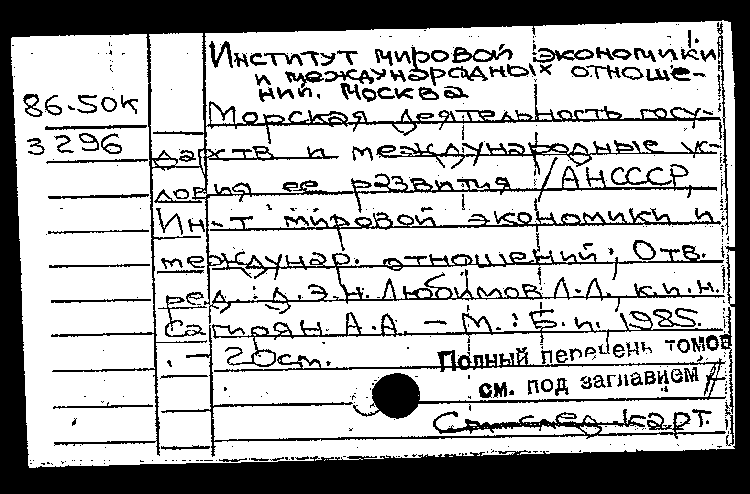 1.
Институт мировой экономики
и международных отноше-
ний. Москва
86-50к
Морская деятельность госу-
3296
дарств и международные ус-
ловия ее развития / АНСССР,
Ин-т мировой экономики и
междунар. отношений; Отв.
ред.: д.э.н. Любимов Л.Л., к.и.н.
Сагирян А.А. - М.: Б.и., 1985.
. - 20см.
Полный перечень томов
см. под заглавием
См. след. карт.